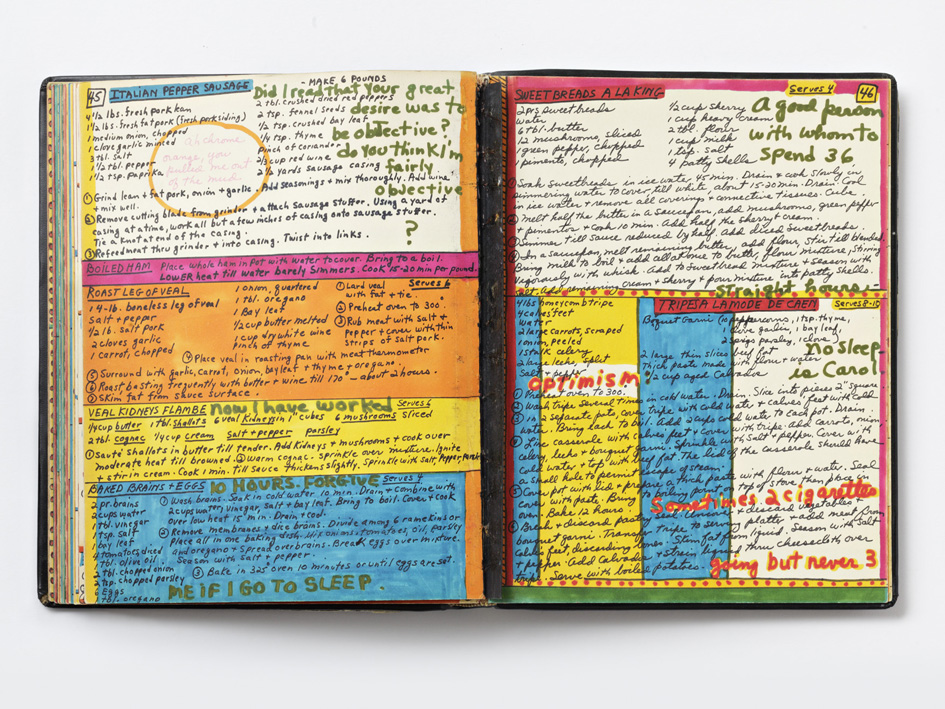 45 ITALIAN PEPPER SAUSAGE
- MAKE 6 POUNDS
4 1/2 lbs. fresh pork
1 1/2 lbs. fresh fat pork (fresh pork siding)
1 medium onion, chopped
1 clove garlic minced
3 tbl. salt
1/2 tbl. pepper
1 1/2 tsp. paprika
2 tbl. crushed dried red peppers
2 tsp. fennel seeds
1/2 tsp. crushed bay leaf
1/2 tsp. thyme
pinch of coriander
2/3 cup red wine
2 1/2 yards sausage casing
Did I read that your great
desire was to
be objective?
do you think i'm
fairly
objective
?
Ah chrome
orange, you
pulled me out
of the mud
① Grind lean + fat pork, onion + garlic. Add seasonings + mix thoroughly. Add wine
+ mix well.
② Remove cutting blade from grinder + attach sausage stuffer. Using a yard of
casing at a time, work all but a few inches of casing onto sausage stuffer.
Tie a knot at end of the casing.
③ Refeed meat thru grinder + into casing. Twist into links.
BOILED HAM Place whole ham in pot with water to cover. Bring to a boil.
LOWER heat till water barely simmers. Cook 15-20 min per pound.
ROAST LEG OF VEAL
Serves 6
1 4-lb. boneless leg of veal
Salt + pepper
1/2 lb. salt pork
2 cloves garlic
1 carrot, chopped
1 onion, quartered
1 tbl. oregano
1 Bay leaf
1/2 cup butter melted
1 cup dry white wine
Pinch of thyme
① Lard veal
with fat + tie.
② Preheat oven to 300°
③ Rub meat with salt +
Pepper + cover with thin
strips of salt pork.
④ Place veal in roasting pan with meat thermometer
⑤ Surround with garlic, carrot, onion, bay leaf + thyme + oregano.
⑥ Roast basting frequently with butter + wine till 170° - about 2 hours.
⑦ Skim fat from sauce surface.
VEAL KIDNEYS FLAMBE
now I have worked
Serves 6
1/4 cup butter 1 tbl. shallots 6 veal kidneys in 1" cubes 6 mushrooms sliced
2 tbl. cognac 1/4 cup cream Salt + pepper parsley
① Sauté shallots in butter till tender. Add kidneys + mushrooms + cook over
moderate heat till browned. ② Warm cognac. Sprinkle over mixture. Ignite
+ stir in cream. Cook 1 min. till sauce thickens slightly. Sprinkle with salt, pepper, parsley
BAKED BRAINS + EGGS
10 HOURS. FORGIVE
2 pr. brains
2 cups water
tbl. vinegar
tsp. salt
bay leaf
4 tomatoes, dried
tbl. olive oil
tbl. chopped onion
tsp. chopped parsley
6 Eggs
1 tbl. oregano
① Wash brains. Soak in cold water 10 min. Drain + combine with
2 cups water, vinegar, salt + bay leaf. Bring to boil. Cover + cook
over low heat 15 min. Drain + cool.
② Remove membrane + dice brains. Divide among 6 ramekins or
place all in one baking dish. Mix onions, tomatoes, oil, parsley
and oregano + spread over brains. Break eggs over mixture.
Season with salt + pepper.
③ Bake in 325° oven 10 minutes or until eggs are set.
ME IF I GO TO SLEEP.
SWEETBREADS A LA KING
Serves 4
46
2 prs sweetbreads
Water
6 tbl. butter
12 mushrooms, sliced
1 green pepper, chopped
1 pimento, chopped
1/2 cup sherry
1 cup heavy cream
2 tbl. flour
1 cup milk
1 tsp. salt
4 patty shells
A good person
with whom to
spend 36
① Soak sweetbreads in ice water 45 min. Drain + cook slowly in
simmering water to cover till white, about 15-20 min. Drain. Cool
in ice water + remove all coverings + connective tissues. Cube.
② Melt half the butter in a saucepan, add mushrooms, green pepper
+ pimento + cook 10 min. Add half the sherry + cream.
③ Simmer till sauce reduced by half. Add diced sweetbreads.
④ In a saucepan, melt remaining butter, add flour, stir till blended.
Bring milk to boil + add all at once to butter flour mixture, stirring
vigorously with whisk. Add to sweetbread mixture + season with
salt. Add remaining cream + sherry + pour mixture into patty shells.
straight hours -
TRIPES A LA MODE DE CAEN
Serves 8-10
4 lbs honeycomb tripe
4 calves feet
water
2 large carrots, scraped
1 onion, peeled
1 stalk celery
2 large leeks, split
Salt + pepper
Bouquet Garni (10 peppercorns, 1 tsp. thyme,
clove garlic, 1 bay leaf,
2 sprigs parsley, 1 clove)
2 large thin slices beef fat
Thick paste made with flour + water
1/2 cup aged Calvados
no sleep
is Carol.
optimism
① Preheat oven to 300°.
② Wash tripe several times in cold water. Drain. Slice into pieces 2" square
③ In 2 separate pots, cover tripe with cold water + calves feet with cold
water. Bring each to boil. Add 2 cups cold water to each pot. Drain.
④ Line casserole with calves feet + cover with tripe. Add carrots, onion
celery, leeks + bouquet garni. Sprinkle with salt + pepper. Cover with
cold water + top with beef fat. The lid of the casserole should have
a small hole to permit escape of steam.
⑤ Cover pot with lid + prepare a thick paste with flour + water. Seal
with paste. Bring to boiling point on top of stove then place in
oven. Bake 12 hours.
Sometimes 2 cigarettes
⑥ Break + discard pastry seal. Uncover + discard vegetables +
bouquet garni. Transfer tripe to serving platter + add meat from
calves feet, discarding bones. Skim fat from liquid. Season with salt
+ pepper. Add Calvados + strain liquid thru cheesecloth over
tripe. Serve with boiled potatoes.
going but never 3